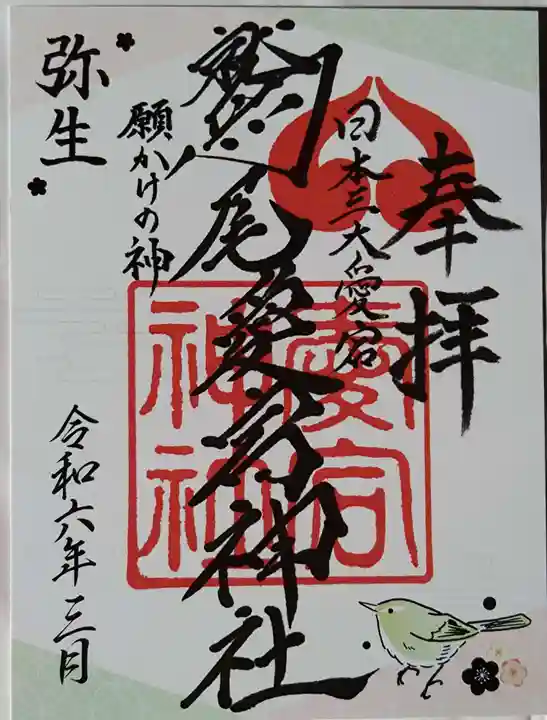 奉拝
日本三大愛宕
鷲尾愛宕神社
願かけの神
弥生
令和六年三月
愛宕
神社